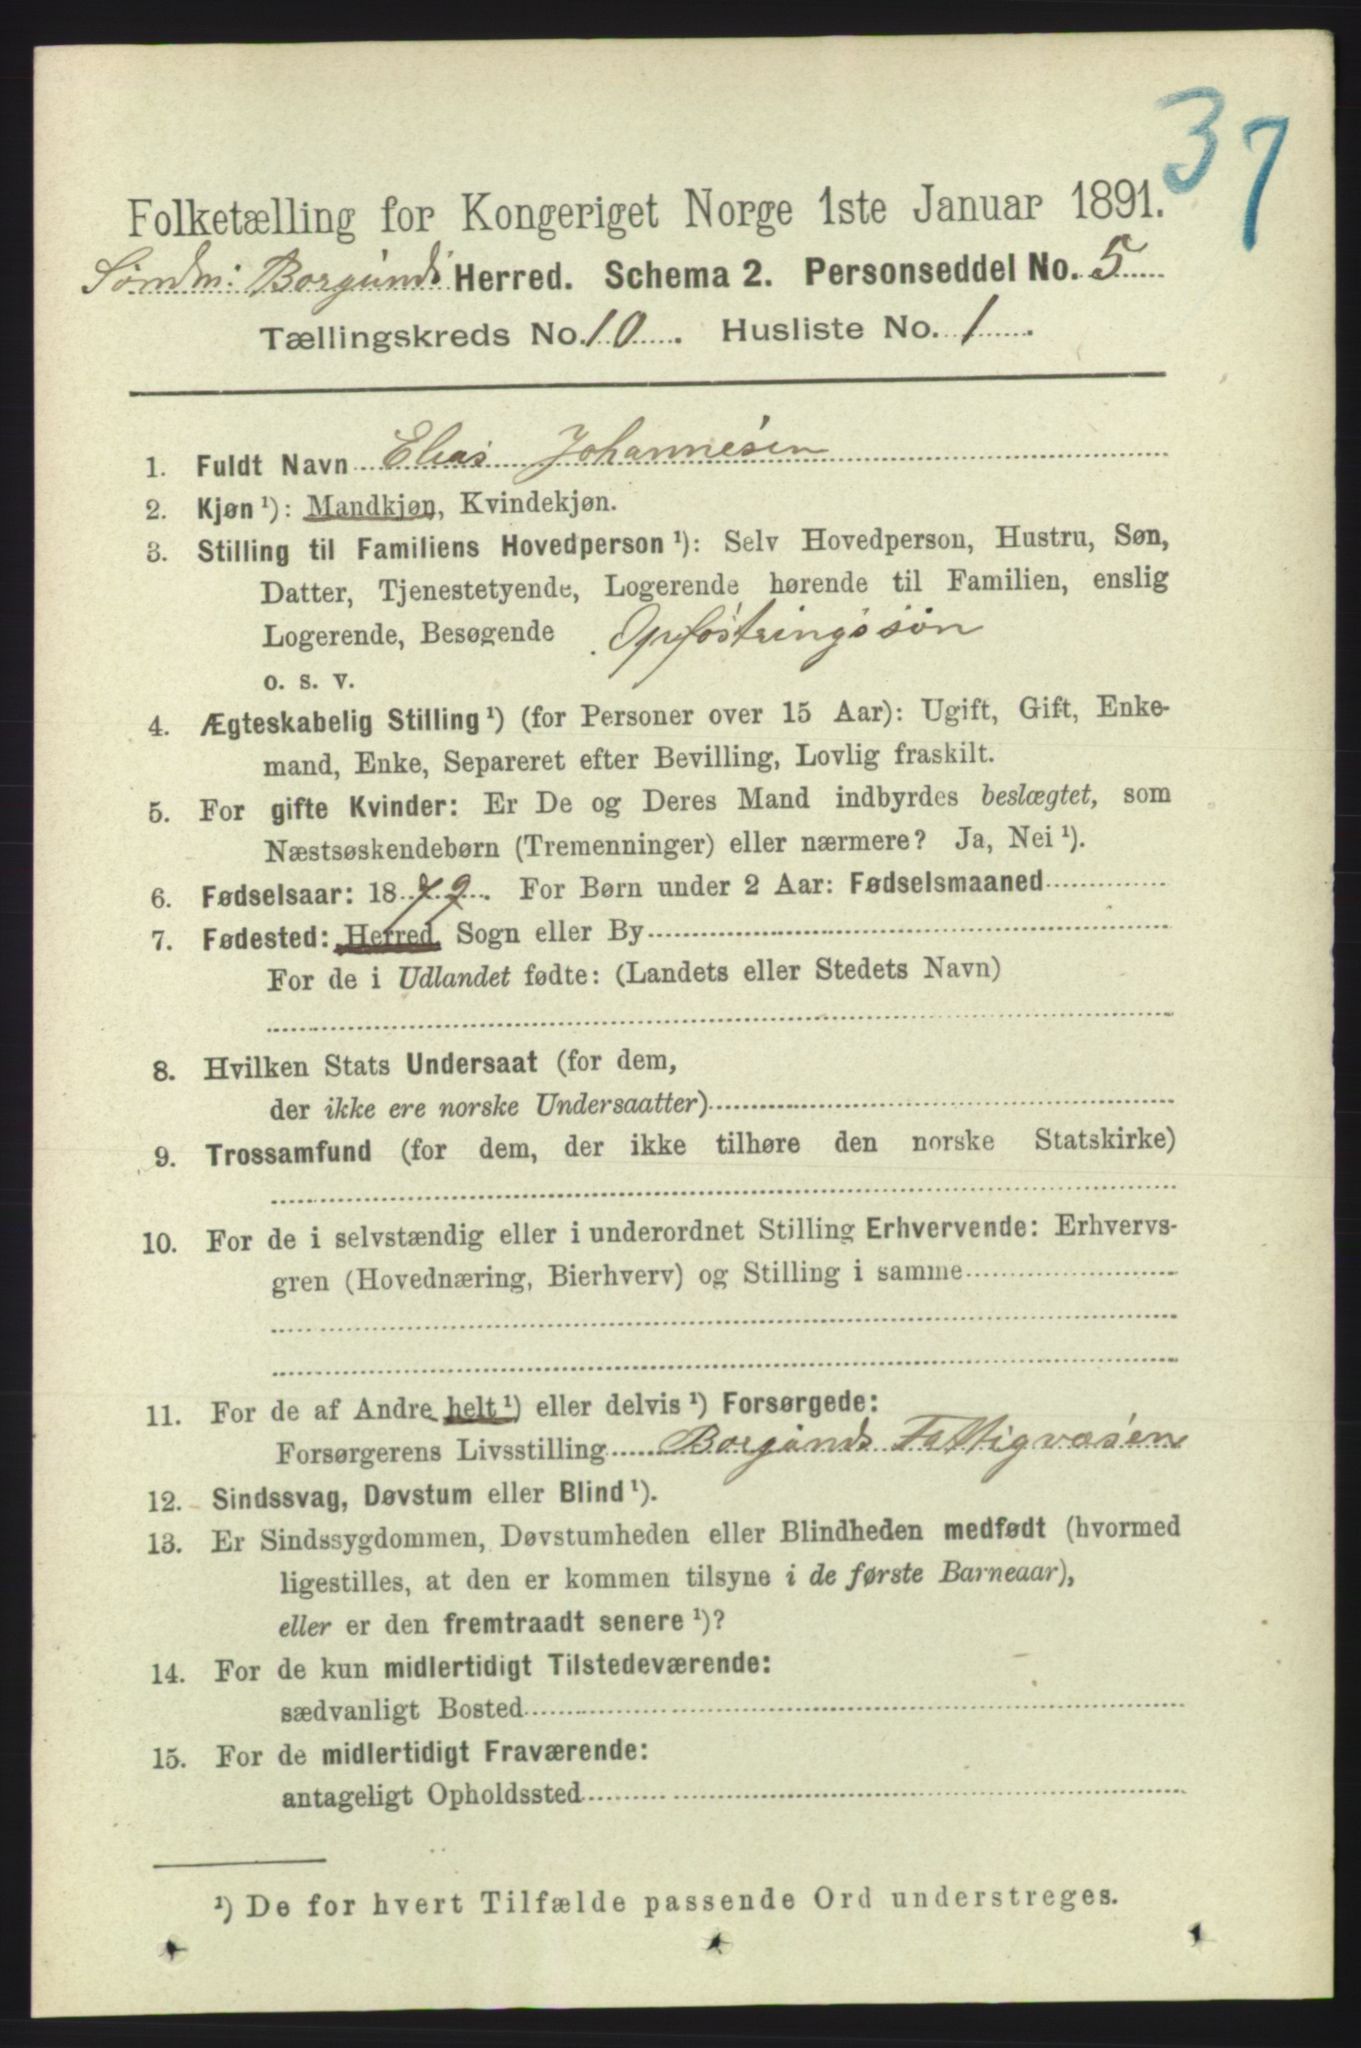 37
Folketælling for Kongeriget Norge 1ste Januar 1891.
Søndm: Borgunds Herred. Schema 2. Personseddel No. 5
Tællingskreds No. 10. Husliste No. 1.
1. Fuldt Navn Elias Johannesen
2. Kjøn ¹): Mandkjøn, Kvindekjøn.
3. Stilling til Familiens Hovedperson ¹): Selv Hovedperson, Hustru, Søn,
Datter, Tjenestetyende, Logerende hørende til Familien, enslig
Logerende, Besøgende Opfostringssøn
o. s. v.
4. Ægteskabelig Stilling ¹) (for Personer over 15 Aar): Ugift, Gift, Enke-
mand, Enke, Separeret efter Bevilling, Lovlig fraskilt.
5. For gifte Kvinder: Er De og Deres Mand indbyrdes beslægtet, som
Næstsøskendebørn (Tremenninger) eller nærmere? Ja, Nei ¹).
6. Fødselsaar: 1879. For Børn under 2 Aar: Fødselsmaaned
7. Fødested: Herred, Sogn eller By
For de i Udlandet fødte: (Landets eller Stedets Navn)
8. Hvilken Stats Undersaat (for dem,
der ikke ere norske Undersaatter)
9. Trossamfund (for dem, der ikke tilhøre den norske Statskirke)
10. For de i selvstændig eller i underordnet Stilling Erhvervende: Erhvervs-
gren (Hovednæring, Bierhverv) og Stilling i samme
11. For de af Andre helt ¹) eller delvis ¹) Forsørgede:
Forsørgerens Livsstilling Borgunds Fattigvæsen
12. Sindssvag, Døvstum eller Blind ¹).
13. Er Sindssygdommen, Døvstumheden eller Blindheden medfødt (hvormed
ligestilles, at den er kommen tilsyne i de første Barneaar),
eller er den fremtraadt senere ¹)?
14. For de kun midlertidigt Tilstedeværende:
sædvanligt Bosted
15. For de midlertidigt Fraværende:
antageligt Opholdssted
¹) De for hvert Tilfælde passende Ord understreges.